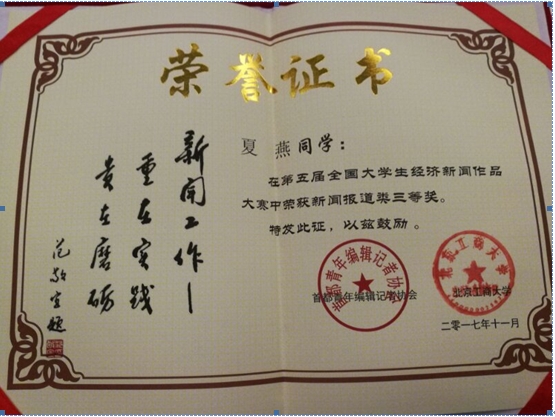 荣誉证书
新闻工作—
重在实践
贵在磨砺
范敬宜题
夏 燕同学：
在第五届全国大学生经济新闻作品
大赛中荣获新闻报道类三等奖。
特发此证，以兹鼓励。
首都青年编辑记者协会
首都青年编辑记者协会
北京工商大学
北京工商大学
二零一七年十一月